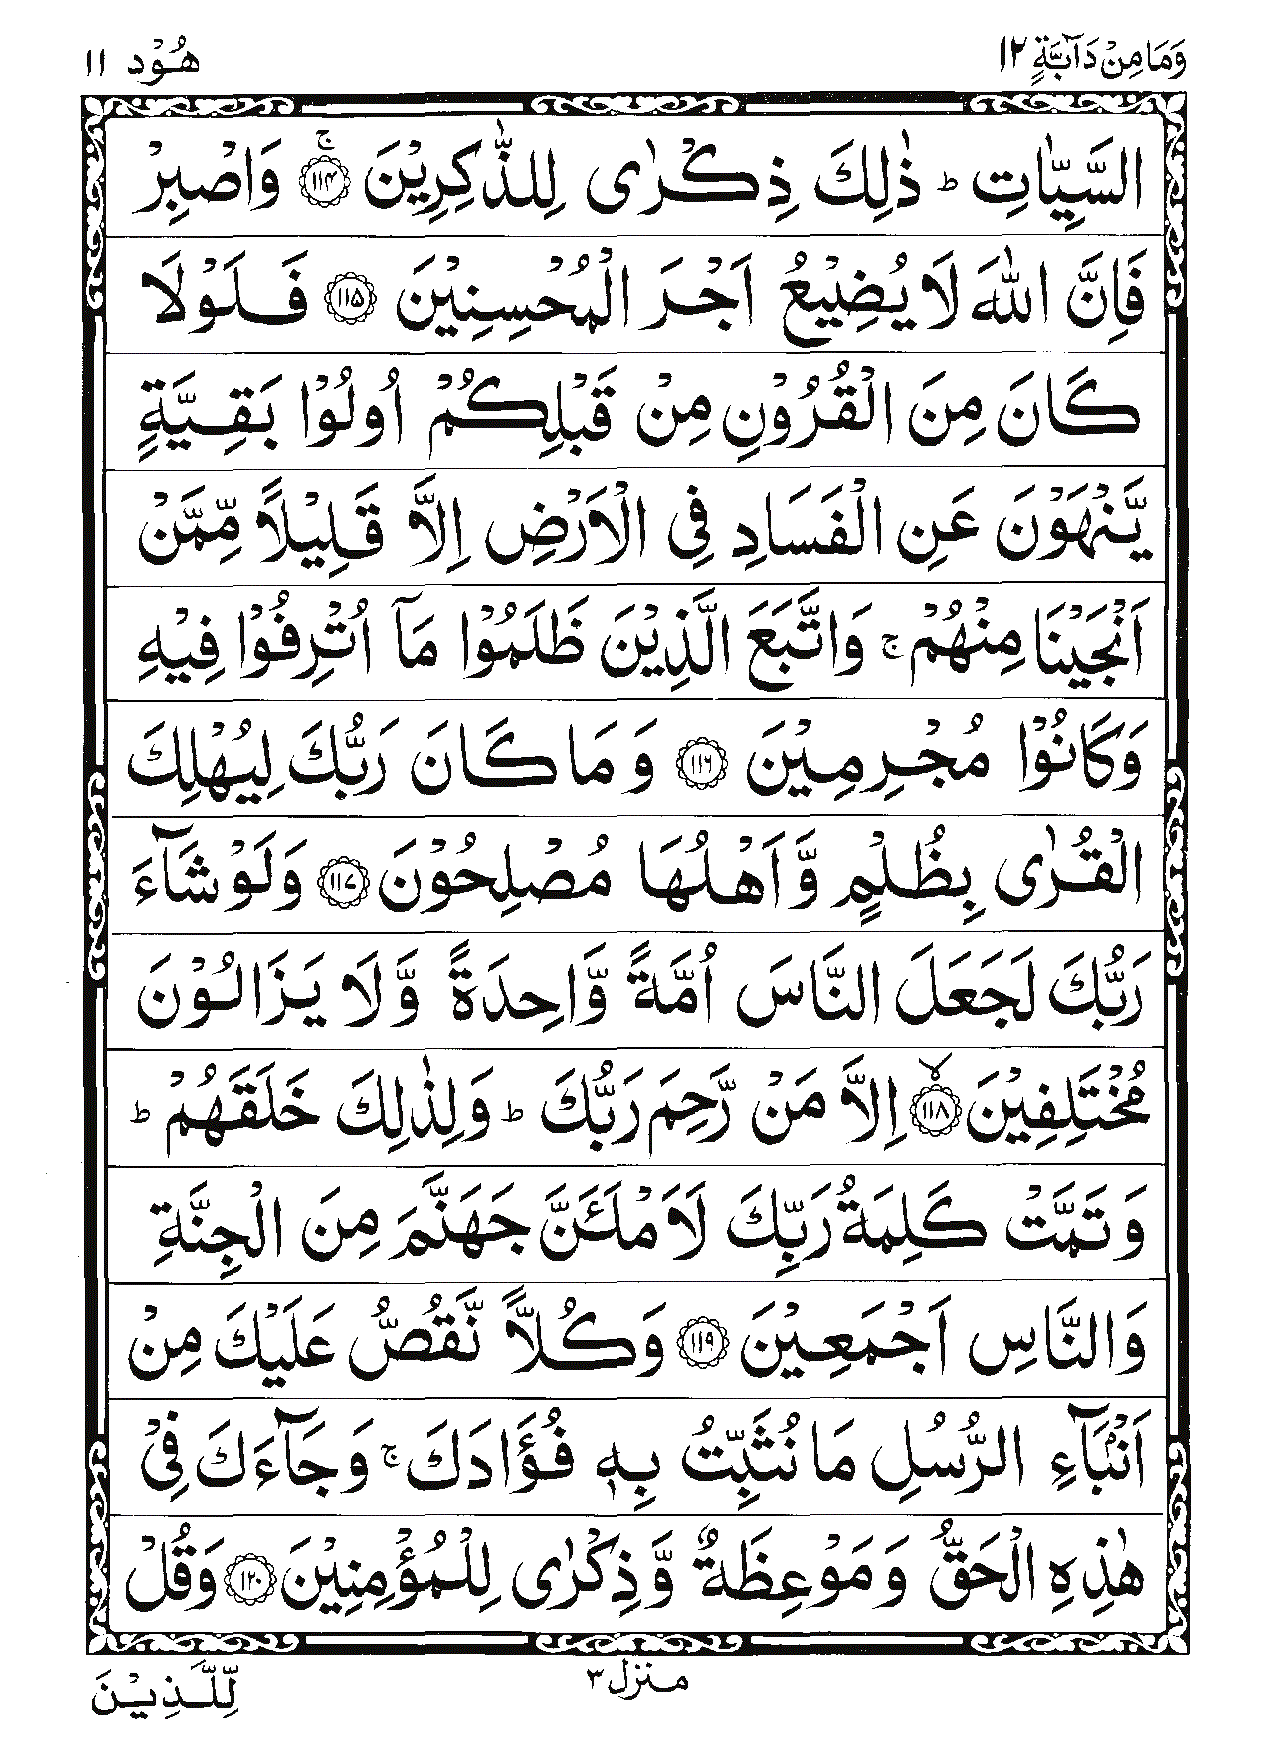 وَمَا مِنْ دَآبَّةٍ ١٢
هُوْد ١١
السَّيِّاٰتِ ؕ ذٰلِكَ ذِكْرٰى لِلذّٰكِرِيْنَ ۚ ﴿۱۱۴﴾ وَاصْبِرْ
فَاِنَّ اللّٰهَ لَا يُضِيْعُ اَجْرَ الْمُحْسِنِيْنَ ﴿۱۱۵﴾ فَلَوْلَا
كَانَ مِنَ الْقُرُوْنِ مِنْ قَبْلِكُمْ اُولُوْا بَقِيَّةٍ
يَّنْهَوْنَ عَنِ الْفَسَادِ فِى الْاَرْضِ اِلَّا قَلِيْلًا مِّمَّنْ
اَنْجَيْنَا مِنْهُمْ ۚ وَاتَّبَعَ الَّذِيْنَ ظَلَمُوْا مَآ اُتْرِفُوْا فِيْهِ
وَكَانُوْا مُجْرِمِيْنَ ﴿۱۱۶﴾ وَمَا كَانَ رَبُّكَ لِيُهْلِكَ
الْقُرٰى بِظُلْمٍ وَّاَهْلُهَا مُصْلِحُوْنَ ﴿۱۱۷﴾ وَلَوْ شَآءَ
رَبُّكَ لَجَعَلَ النَّاسَ اُمَّةً وَّاحِدَةً وَّلَا يَزَالُوْنَ
مُخْتَلِفِيْنَ ۙ ﴿۱۱۸﴾ اِلَّا مَنْ رَّحِمَ رَبُّكَ ؕ وَلِذٰلِكَ خَلَقَهُمْ ؕ
وَتَمَّتْ كَلِمَةُ رَبِّكَ لَاَمْلَئَنَّ جَهَنَّمَ مِنَ الْجِنَّةِ
وَالنَّاسِ اَجْمَعِيْنَ ﴿۱۱۹﴾ وَكُلًّا نَّقُصُّ عَلَيْكَ مِنْ
اَنْۢبَآءِ الرُّسُلِ مَا نُثَبِّتُ بِهٖ فُؤَادَكَ ۚ وَجَآءَكَ فِىْ
هٰذِهِ الْحَقُّ وَمَوْعِظَةٌ وَّذِكْرٰى لِلْمُؤْمِنِيْنَ ﴿۱۲۰﴾ وَقُلْ
منزل ٣
لِّلَّذِيْنَ